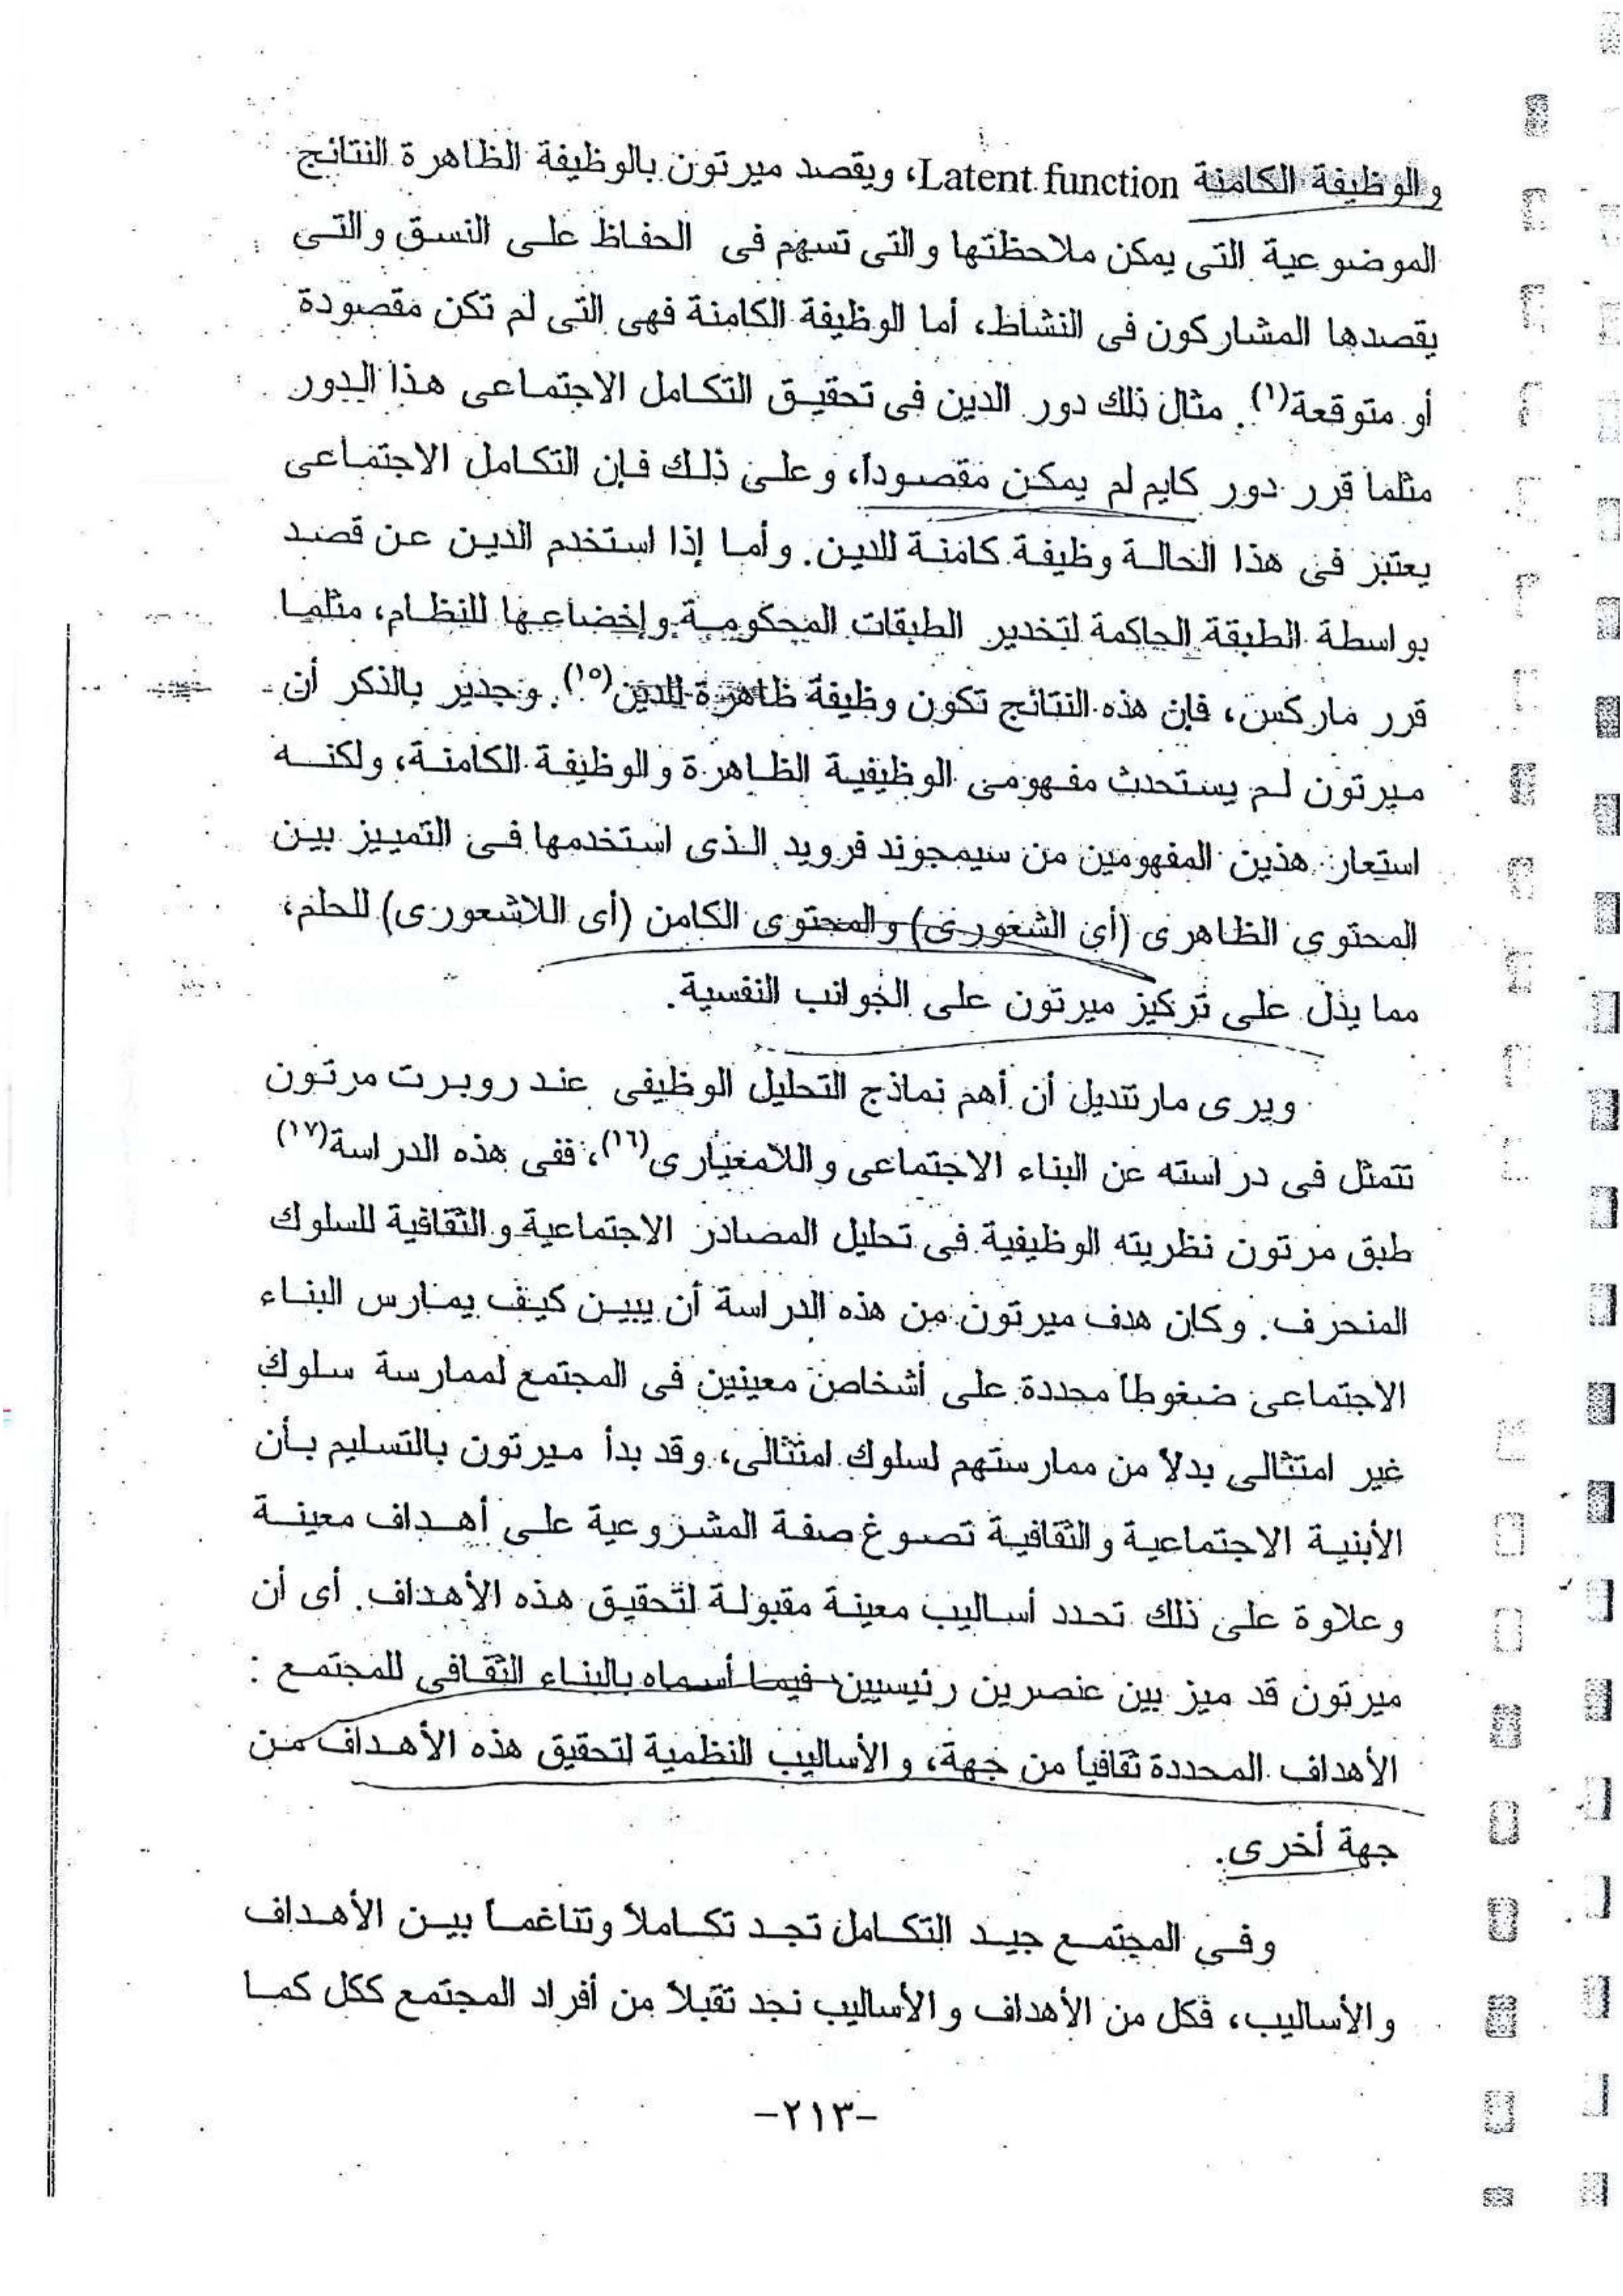 والوظيفة الكامنة Latent function، ويقصد ميرتون بالوظيفة الظاهرة النتائج
الموضوعية التى يمكن ملاحظتها والتى تسهم فى الحفاظ على النسق والتى
يقصدها المشاركون فى النشاط، أما الوظيفة الكامنة فهى التى لم تكن مقصودة
أو متوقعة(١). مثال ذلك دور الدين فى تحقيق التكامل الاجتماعى هذا الدور
مثلما قرر دور كايم لم يمكن مقصوداً، وعلى ذلك فإن التكامل الاجتماعى
يعتبر فى هذا الحالة وظيفة كامنة للدين. وأما إذا استخدم الدين عن قصد
بواسطة الطبقة الحاكمة لتخدير الطبقات المحكومة وإخضاعها للنظام، مثلما
قرر ماركس، فإن هذه النتائج تكون وظيفة ظاهرة للدين(١٥). وجدير بالذكر أن
ميرتون لم يستحدث مفهومى الوظيفية الظاهرة والوظيفة الكامنة، ولكنه
استعار هذين المفهومين من سيمجوند فرويد الذى استخدمها فى التمييز بين
المحتوى الظاهرى (أى الشعورى) والمحتوى الكامن (أى اللاشعورى) للحلم،
مما يدل على تركيز ميرتون على الجوانب النفسية.
ويرى مارتنديل أن أهم نماذج التحليل الوظيفى عند روبرت مرتون
تتمثل فى دراسته عن البناء الاجتماعى واللامعيارى(١٦)، ففى هذه الدراسة(١٧)
طبق مرتون نظريته الوظيفية فى تحليل المصادر الاجتماعية والثقافية للسلوك
المنحرف. وكان هدف ميرتون من هذه الدراسة أن يبين كيف يمارس البناء
الاجتماعى ضغوطاً محددة على أشخاص معينين فى المجتمع لممارسة سلوك
غير امتثالى بدلاً من ممارستهم لسلوك امتثالى، وقد بدأ ميرتون بالتسليم بأن
الأبنية الاجتماعية والثقافية تصوغ صفة المشروعية على أهداف معينة
وعلاوة على ذلك تحدد أساليب معينة مقبولة لتحقيق هذه الأهداف. أى أن
ميرتون قد ميز بين عنصرين رئيسيين فيما أسماه بالبناء الثقافى للمجتمع :
الأهداف المحددة ثقافياً من جهة، والأساليب النظمية لتحقيق هذه الأهداف من
جهة أخرى.
وفى المجتمع جيد التكامل تجد تكاملاً وتناغماً بين الأهداف
والأساليب، فكل من الأهداف والأساليب نجد تقبلاً من أفراد المجتمع ككل كما
-٢١٣-